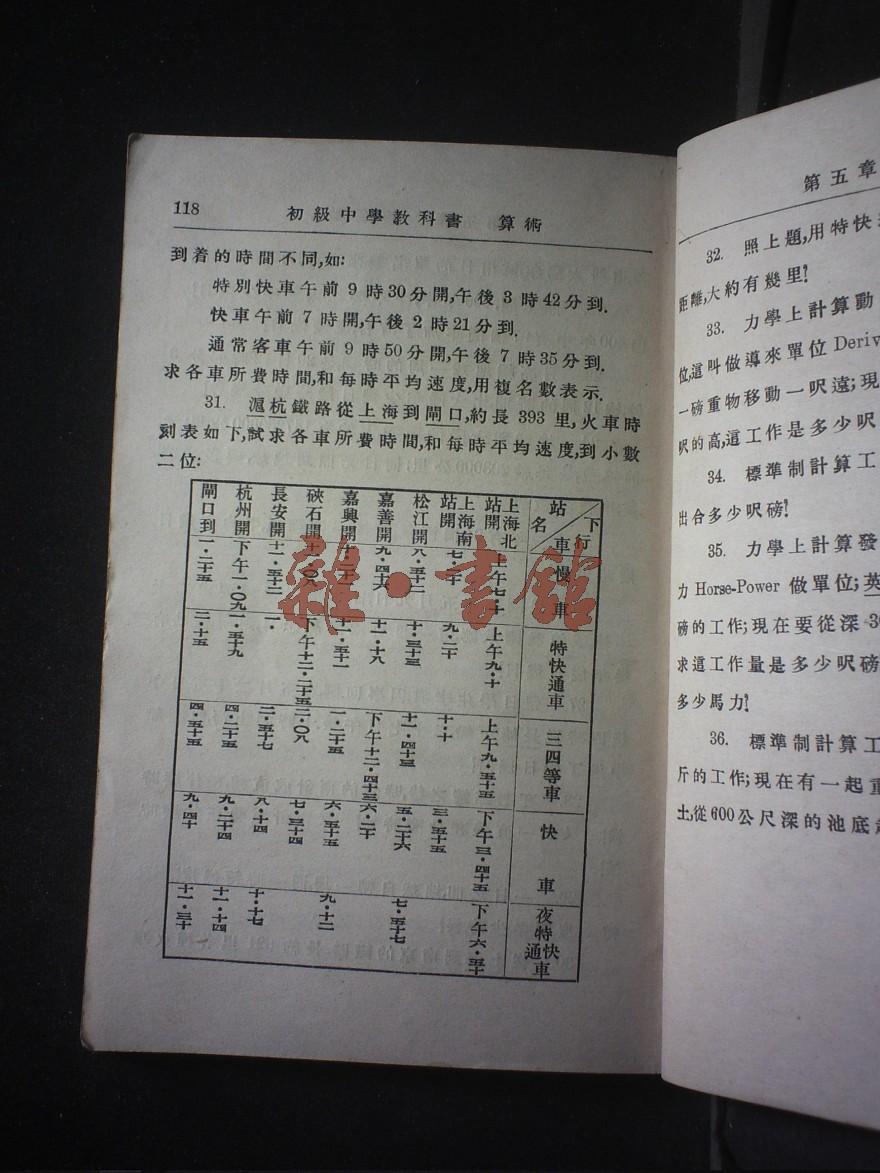 118 初級中學教科書 算術
到着的時間不同,如:
特別快車午前9時30分開,午後3時42分到.
快車午前7時開,午後2時21分到.
通常客車午前9時50分開,午後7時35分到.
求各車所費時間,和每時平均速度,用複名數表示.
31. 滬杭鐵路從上海到閘口,約長393里,火車時
刻表如下,試求各車所費時間,和每時平均速度,到小數
二位:
下行 車 站名
上海北站開
上海南站開
松江開
嘉善開
嘉興開
硤石開
長安開
杭州開
閘口到
慢車
九·四六
十一·五二
下午一·〇九
一·二十五
特快通車
上午九·十
九·二十
十·三十三
十一·十八
十一·五一
下午十二·二五
一·
一·五十九
二·十五
三四等車
上午九·五十五
十·十
十一·四十三
下午十二·四十三
一·二十五
二·〇八
二·五十七
四·二十五
四·五十五
快車
下午三·四十五
三·五十五
五·二十六
六·二十
六·五十五
七·三十四
八·十四
九·二十四
九·四十
夜特快通車
下午六·五十
七·五十七
九·十二
十·十七
十一·十四
十一·三十
雜·書館
第五章
32. 照上題,用特快
距離,大約有幾里?
33. 力學上計算動
位,這叫做導來單位 Deriv
一磅重物移動一呎遠;現
呎的高,這工作是多少呎
34. 標準制計算工
出合多少呎磅?
35. 力學上計算發
力 Horse-Power 做單位;英
磅的工作;現在要從深
求這工作量是多少呎磅
多少馬力?
36. 標準制計算工
斤的工作;現在有一起重
土,從600公尺深的池底